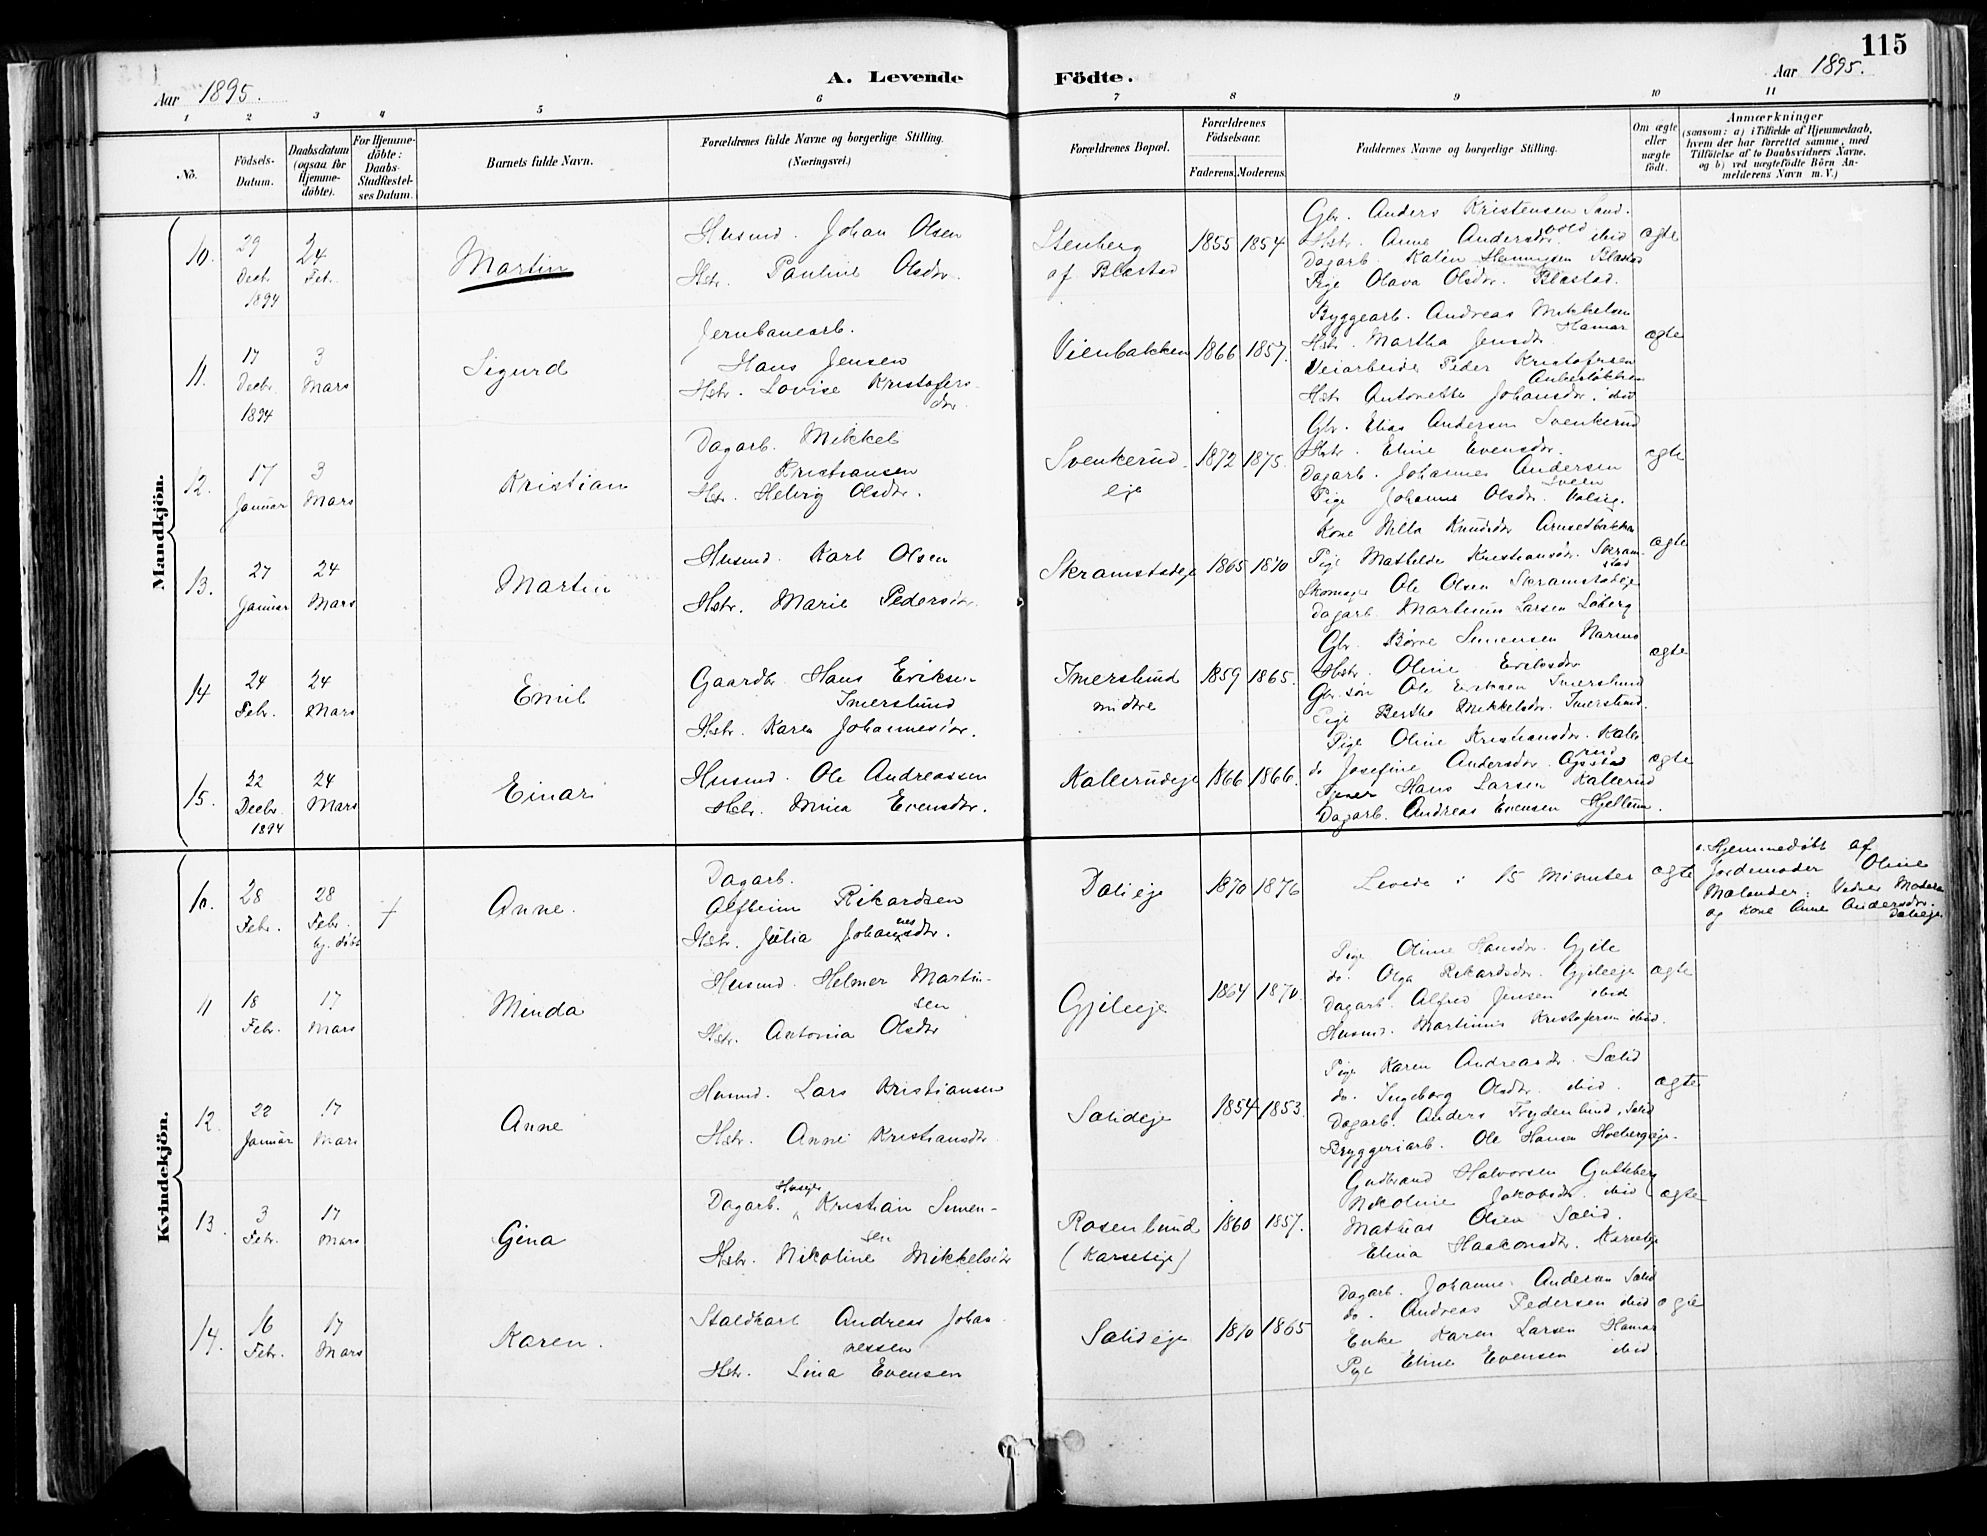 115
Aar 1895.
A. Levende Födte.
Aar 1895.
1 2 3 4 5 6 7 8 9 10 11
No.
Födsels-Datum.
Daabsdatum (ogsaa for Hjemme-döbte).
For Hjemme-döbte: Daabs-Stadfæstel-ses Datum.
Barnets fulde Navn.
Forældrenes fulde Navne og borgerlige Stilling. (Næringsvei.)
Forældrenes Bopæl.
Forældrenes Födselsaar.
Faderens. Moderens.
Faddernes Navne og borgerlige Stilling.
Om ægte eller uægte födt.
Anmærkninger
(saasom: a) i Tilfælde af Hjemmedaab,
hvem der har forrettet samme, med
Tilföielse af to Daabsvidners Navne.
og b) ved uægtefödte Börn An-
melderens Navn m. V.)
Mandkjön.
10. 29 Decbr. 1894 24 Febr. Martin
Husmd. Johan Olsen
Hstr. Pauline Olsdtr.
Stenberg
af Blæstad
1855 1854
Gbr. Anders Kristensen Sand-
vold
Hstr. Anne Andersdtr. ibid
Dagarb. Kalin Blæstad
Pige Olava Olsdtr. Blæstad.
ægte
11. 17 Decbr. 1894 3 Mars Sigurd
Jernbanearb.
Hans Jensen
Hstr. Lovise Kristofers-
dtr.
Vienbakken 1866 1857.
Byggearb. Andreas Mikkelsen
Hamar
Hstr. Martha Jensdtr.
Veiarbeide Peder Kristofersen
Hstr. Antonette Johansdtr. ibid
ægte
12. 17 Januar 3 Mars Kristian
Dagarb. Mikkel
Kristiansen
Hstr. Helvig Olsdtr.
Svenkerud
eje
1872 1875.
Gbr. Elias Andersen Svenkerud
Hstr. Eline Evensdtr.
Dagarb. Johannes Andersen
Sveen
Pige Johanne Olsdtr.
ægte
13. 27 Januar 24 Mars Martin
Husmd. Karl Olsen
Hstr. Marie Pedersdtr.
Skramstadeje 1865 1870
Kone Knudsdtr.
Pige Mathilde Kristiansdtr. Skram-
stad
Skomager Ole Olsen Skramstadeje
Dagarb. Martinus Larsen Løberg
ægte
14 24 Febr. 24 Mars Emil
Gaardbr. Hans Eriksen
Imerslund
Hstr. Karen Johannesdtr.
Imerslund
midtre
1859 1865.
Gbr. Børre Simensen Narmo
Hstr. Oline Eriksdtr
Gbr. søn Ole Eriksen Imerslund
Pige Berthe Mikkelsdtr. Imerslund.
ægte
15. 22 Decbr. 1894 24 Mars Einar
Husmd. Ole Andreassen
Hstr. Mina Evensdtr.
Kallerudeje 1866 1866.
Pige Oline Kristiansdtr. Kalle-
rud
do Josefine Andersdtr.
Tjener Hans Larsen Kallerud
Dagarb. Andreas Evensen Hjellum.
ægte
Kvindekjön.
10. 28 Febr. 28 Febr. hj. døbt † Anne.
Dagarb.
Alfheim Rikardsen
Hstr. Julia Johannesdtr.
Dalieje 1870 1876
Levede i 15 Minuter
ægte
a. Hjemmedøbt af
Jordemoder Oline
Malender; Vidner Moderen
og Kone Anne Andersdtr.
Dalieje
11 18 Febr. 17 Mars Minda
Husmd. Helmer Martin-
sen
Hstr. Antonia Olsdtr
Gjileeje 1864 1870.
Pige Oline Hansdtr. Gjile
do. Olga Rikardsdtr. Gjileeje
Dagarb. Alfred Jensen ibid
Husmd. Martinus Kristofersen ibid.
ægte
12. 22 Januar 17 Mars Anne
Husmd. Lars Kristiansen
Hstr. Anne Kristiansdtr.
Sælideje 1854 1853.
Pige Karen Andreasdtr. Sælid
do. Ingeborg Olsdtr. ibid.
Dagarb. Anders Frydenlund, Sælid
Bryggeriarb. Ole Hansen Hobergeje.
ægte
13. 3 Febr. 17 Mars Gina
Dagarb. Huseje Kristian Simen-
sen
Hstr. Nikoline Mikkelsdtr
Rosenlund
(Karseteje)
1860 1857.
Gudbrand Halvorsen Gulkberg
Nikoline Jakobsdtr. ibid
Mathias Olsen Sælid.
Elina Haakonsdtr.
ægte
14. 16 Febr. 17 Mars Karen.
Staldkarl Andreas Johan-
nessen
Hstr. Lina Evensen
Sælideje 1870 1865
Dagarb. Johannes Andersen Sælid
do. Andreas Pedersen ibid
Enke Karen Larsen Hamar
Pige Eline Evensen ibid
ægte